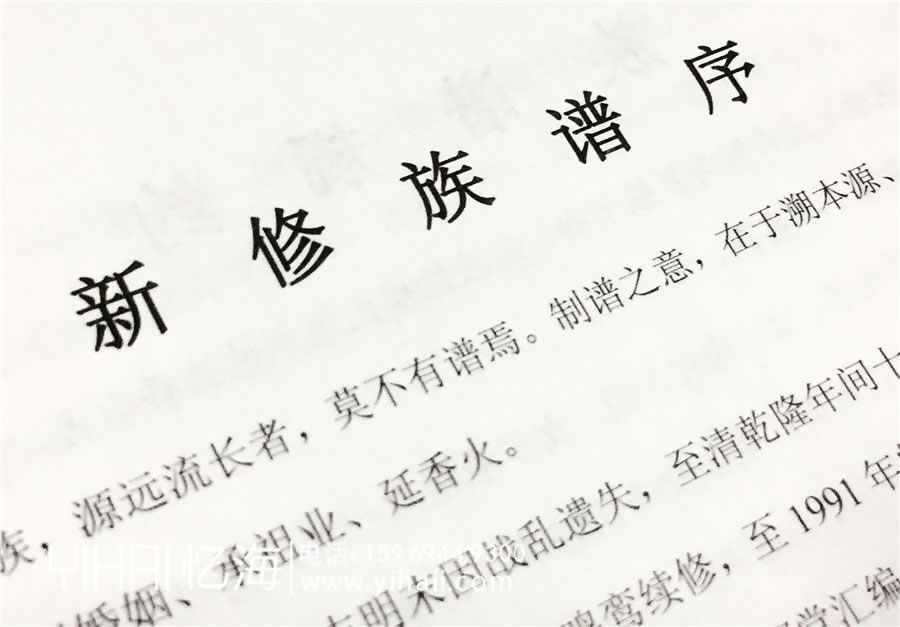 新修族谱序
族，源远流长者，莫不有谱焉。制谱之意，在于溯本源、
婚姻、承祖业、延香火。
明末因战乱遗失，至清乾隆年间十
鸾续修，至1991年
堂汇编
YIHAI 忆海 电话:15969449300
www.yihaii.com